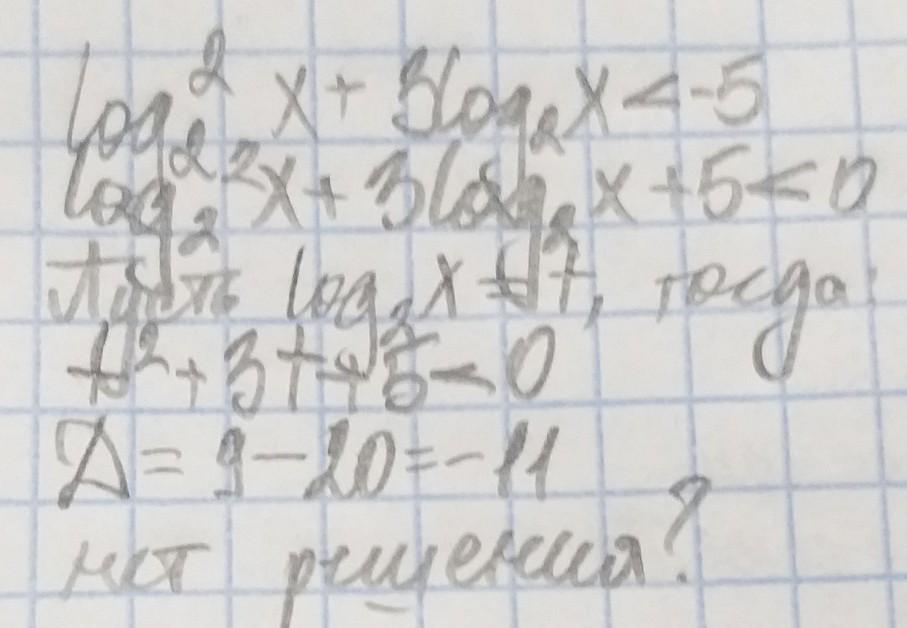 log₂² x + 3log₂x < -5
log₂²x + 3log₂x + 5 < 0
Пусть log₂x = t, тогда:
t² + 3t + 5 < 0
Д = 9 - 20 = -11
нет решения?